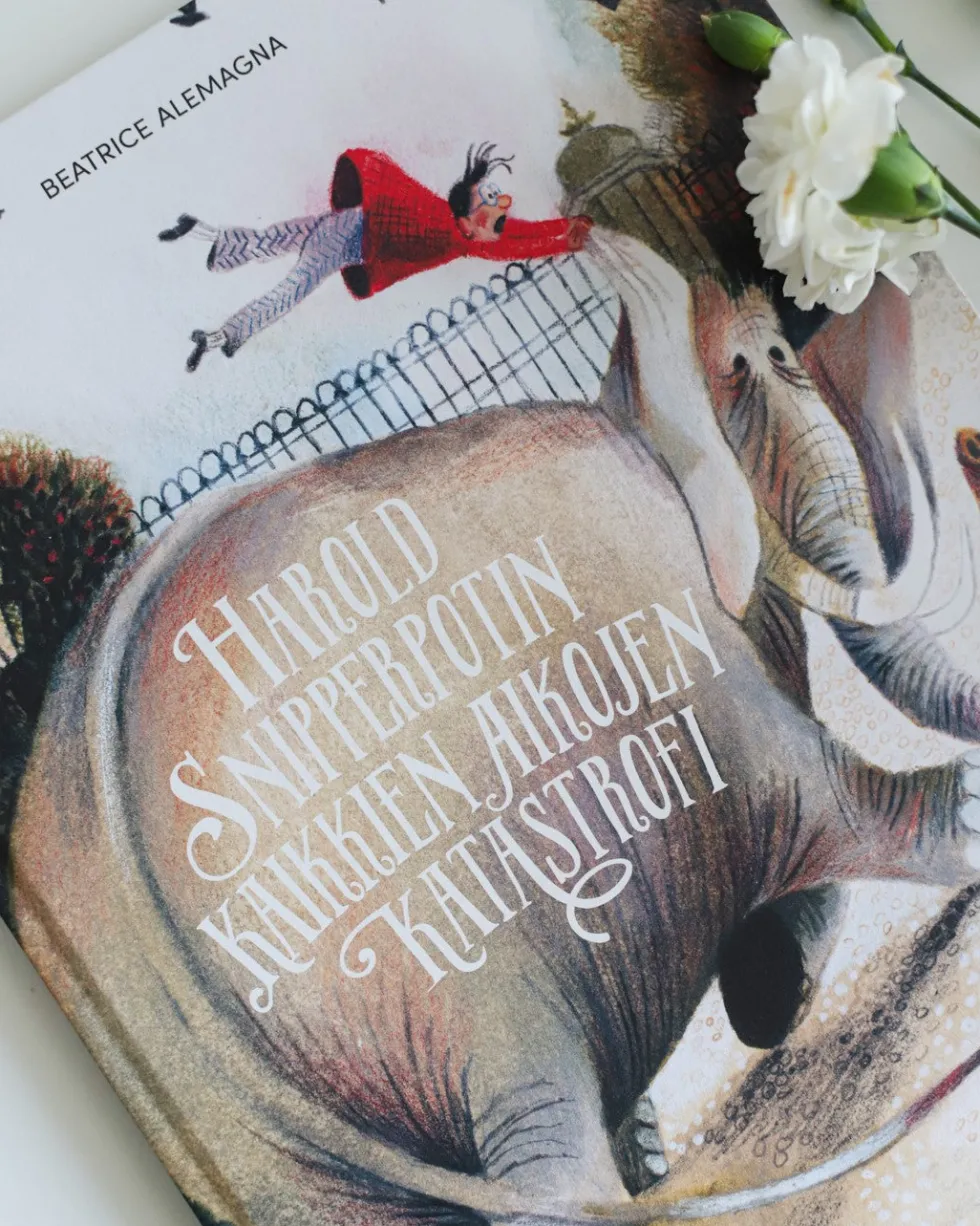 BEATRICE ALEMAGNA
HAROLD
SNIPPERPOTIN
KAIKKIEN AIKOJEN
KATASTROFI